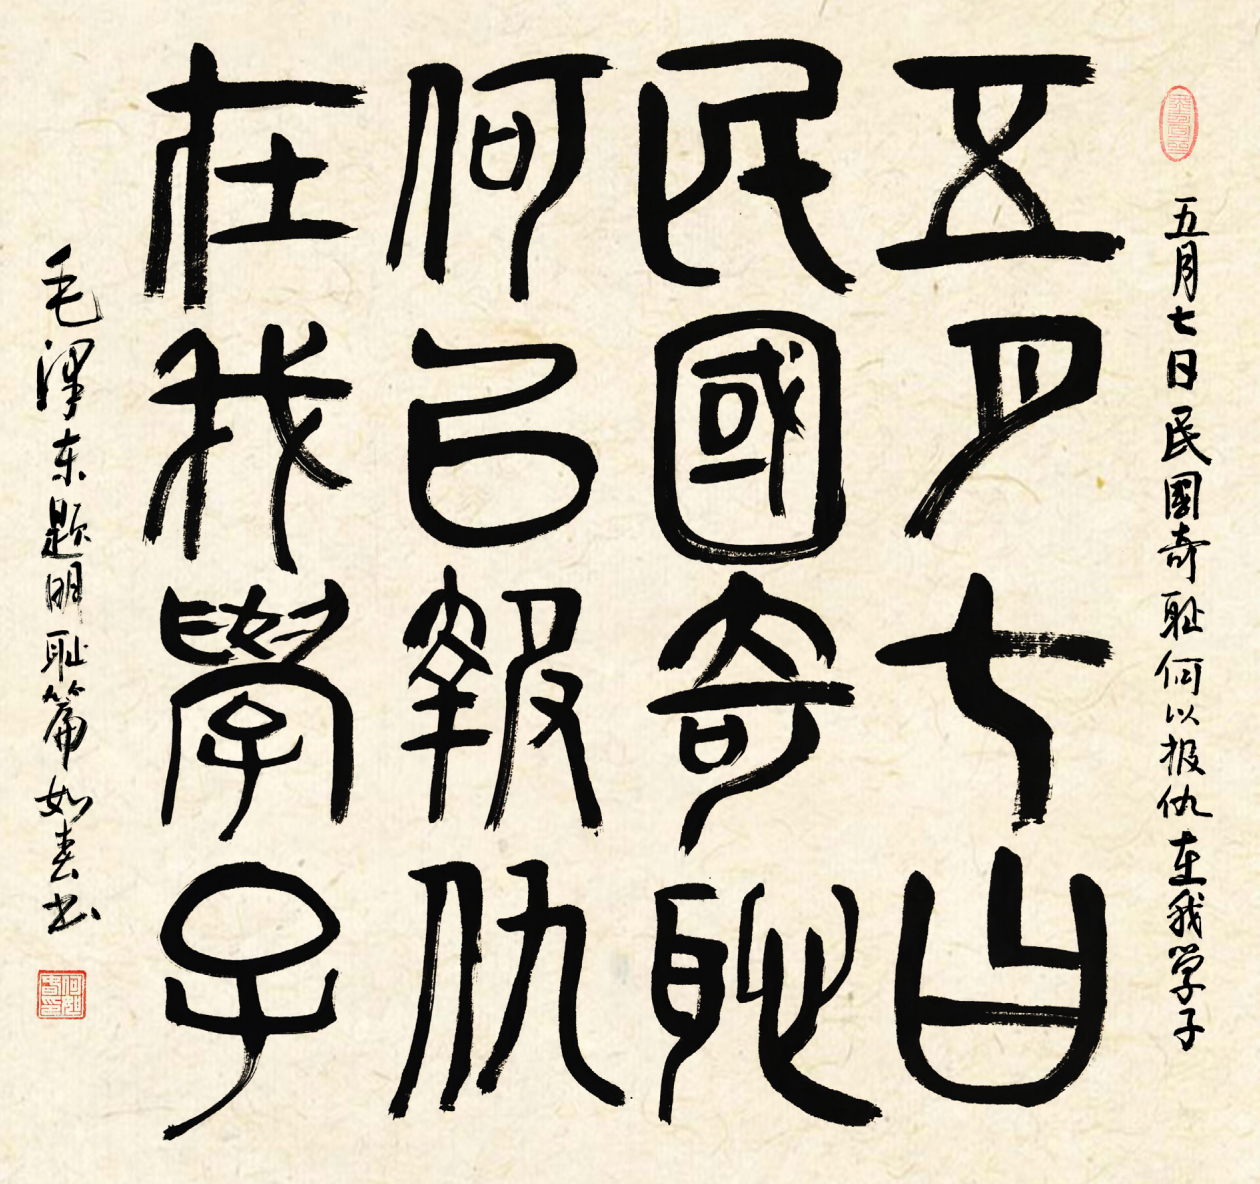 五月七日民國奇耻何以报仇在我学子
五月七日
民國奇恥
何以報仇
在我學子
毛泽东题明耻篇如春书
何如春印